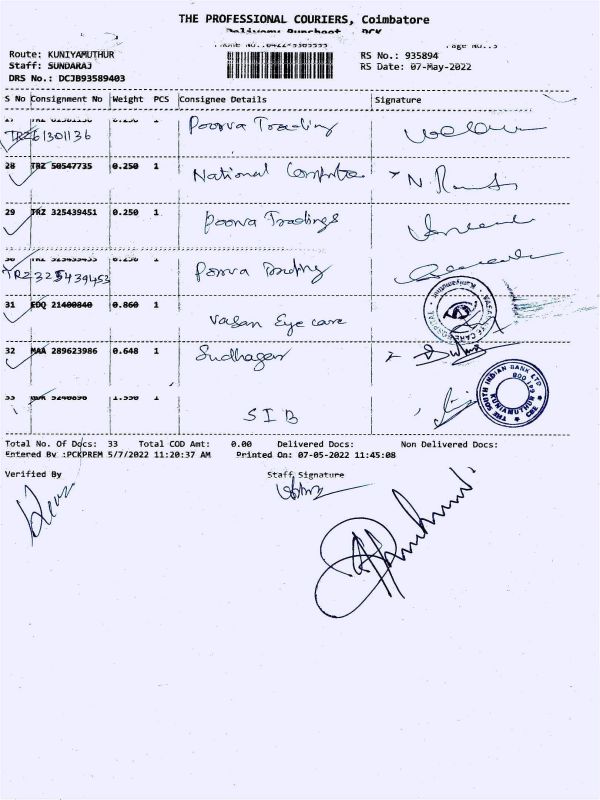 THE PROFESSIONAL COURIERS, Coimbatore
Delivery Runsheet PCK
Page No.:3
Route: KUNIYAMUTHUR
RS No.: 935894
Staff: SUNDARAJ
RS Date: 07-May-2022
DRS No.: DCJB93589403
S No Consignment No Weight PCS Consignee Details Signature
27 TRZ 61301136 0.250 1 Poorva Trading
TRZ61301136
28 TRZ 50547735 0.250 1 National
29 TRZ 325439451 0.250 1 Poorva Tradings
30 TRZ 325439453 0.250 1 Poorva Trading
TRZ325439453
31 EDQ 21400840 0.860 1 Vasan Eye care
32 MAA 289623986 0.648 1 Sudhagar
33 1 SIB
THE SOUTH INDIAN BANK LTD
KUNIAMUTHUR
CBE
641 008
Total No. Of Docs: 33 Total COD Amt: 0.00 Delivered Docs: Non Delivered Docs:
Entered By :PCKPREM 5/7/2022 11:20:37 AM Printed On: 07-05-2022 11:45:08
Verified By Staff Signature